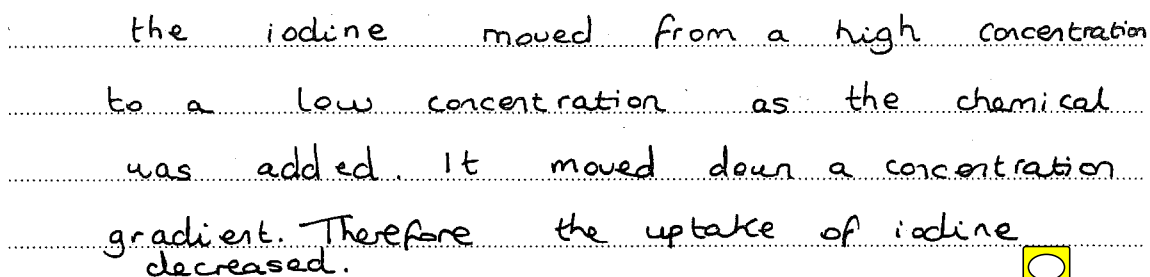 the iodine moved from a high concentration
to a low concentration as the chemical
was added. It moved down a concentration
gradient. Therefore the uptake of iodine
decreased.